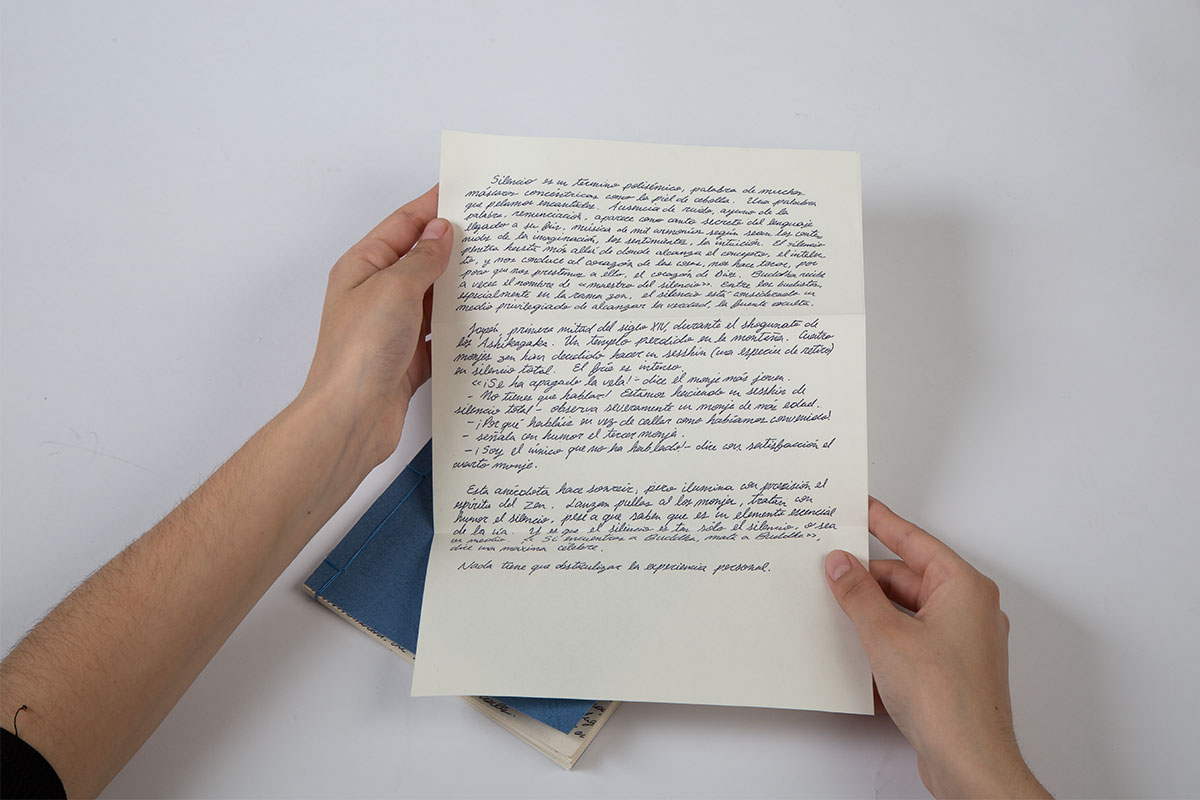 Silencio es un término polisémico, palabra de muchas
máscaras concéntricas como la piel de cebolla. Una palabra
que pelamos encantados. Ausencia de ruido, ayuno de la
palabra, renunciación, aparece como canto secreto del lenguaje
llegado a su fin, música de mil armonías según sean los conte
nidos de la imaginación, los sentimientos, la intuición. El silencio
penetra hasta más allá de donde alcanza el concepto, el intelec
to, y nos conduce al corazón de las cosas, nos hace tocar, por
poco que nos prestemos a ello, el corazón de Dios. Buddha recibe
a veces el nombre de «maestro del silencio». Entre los budistas,
especialmente en la rama zen, el silencio está considerado un
medio privilegiado de alcanzar la verdad, la fuente oculta.
Japón, primera mitad del siglo XIV, durante el shogunato de
los Ashikagaka. Un templo perdido en la montaña. Cuatro
monjes zen han decidido hacer un sesshin (una especie de retiro)
en silencio total. El frío es intenso.
«¡Se ha apagado la vela! - dice el monje más joven.
- No tienes que hablar! Estamos haciendo un sesshin de
silencio total - observa severamente un monje de más edad.
- ¡Por qué habláis en vez de callar como habíamos convenido!
- señala con humor el tercer monje.
- ¡Soy el único que no ha hablado! - dice con satisfacción el
cuarto monje.
Esta anécdota hace sonreír, pero ilumina con precisión el
espíritu del Zen. Lanzan pullas a los monjes, tratan con
humor el silencio, pese a que saben que es un elemento esencial
de la vía. Y es que el silencio es tan sólo el silencio, o sea
un medio. « Si encuentras a Buddha, mata a Buddha»,
dice una máxima célebre.
Nada tiene que obstaculizar la experiencia personal.